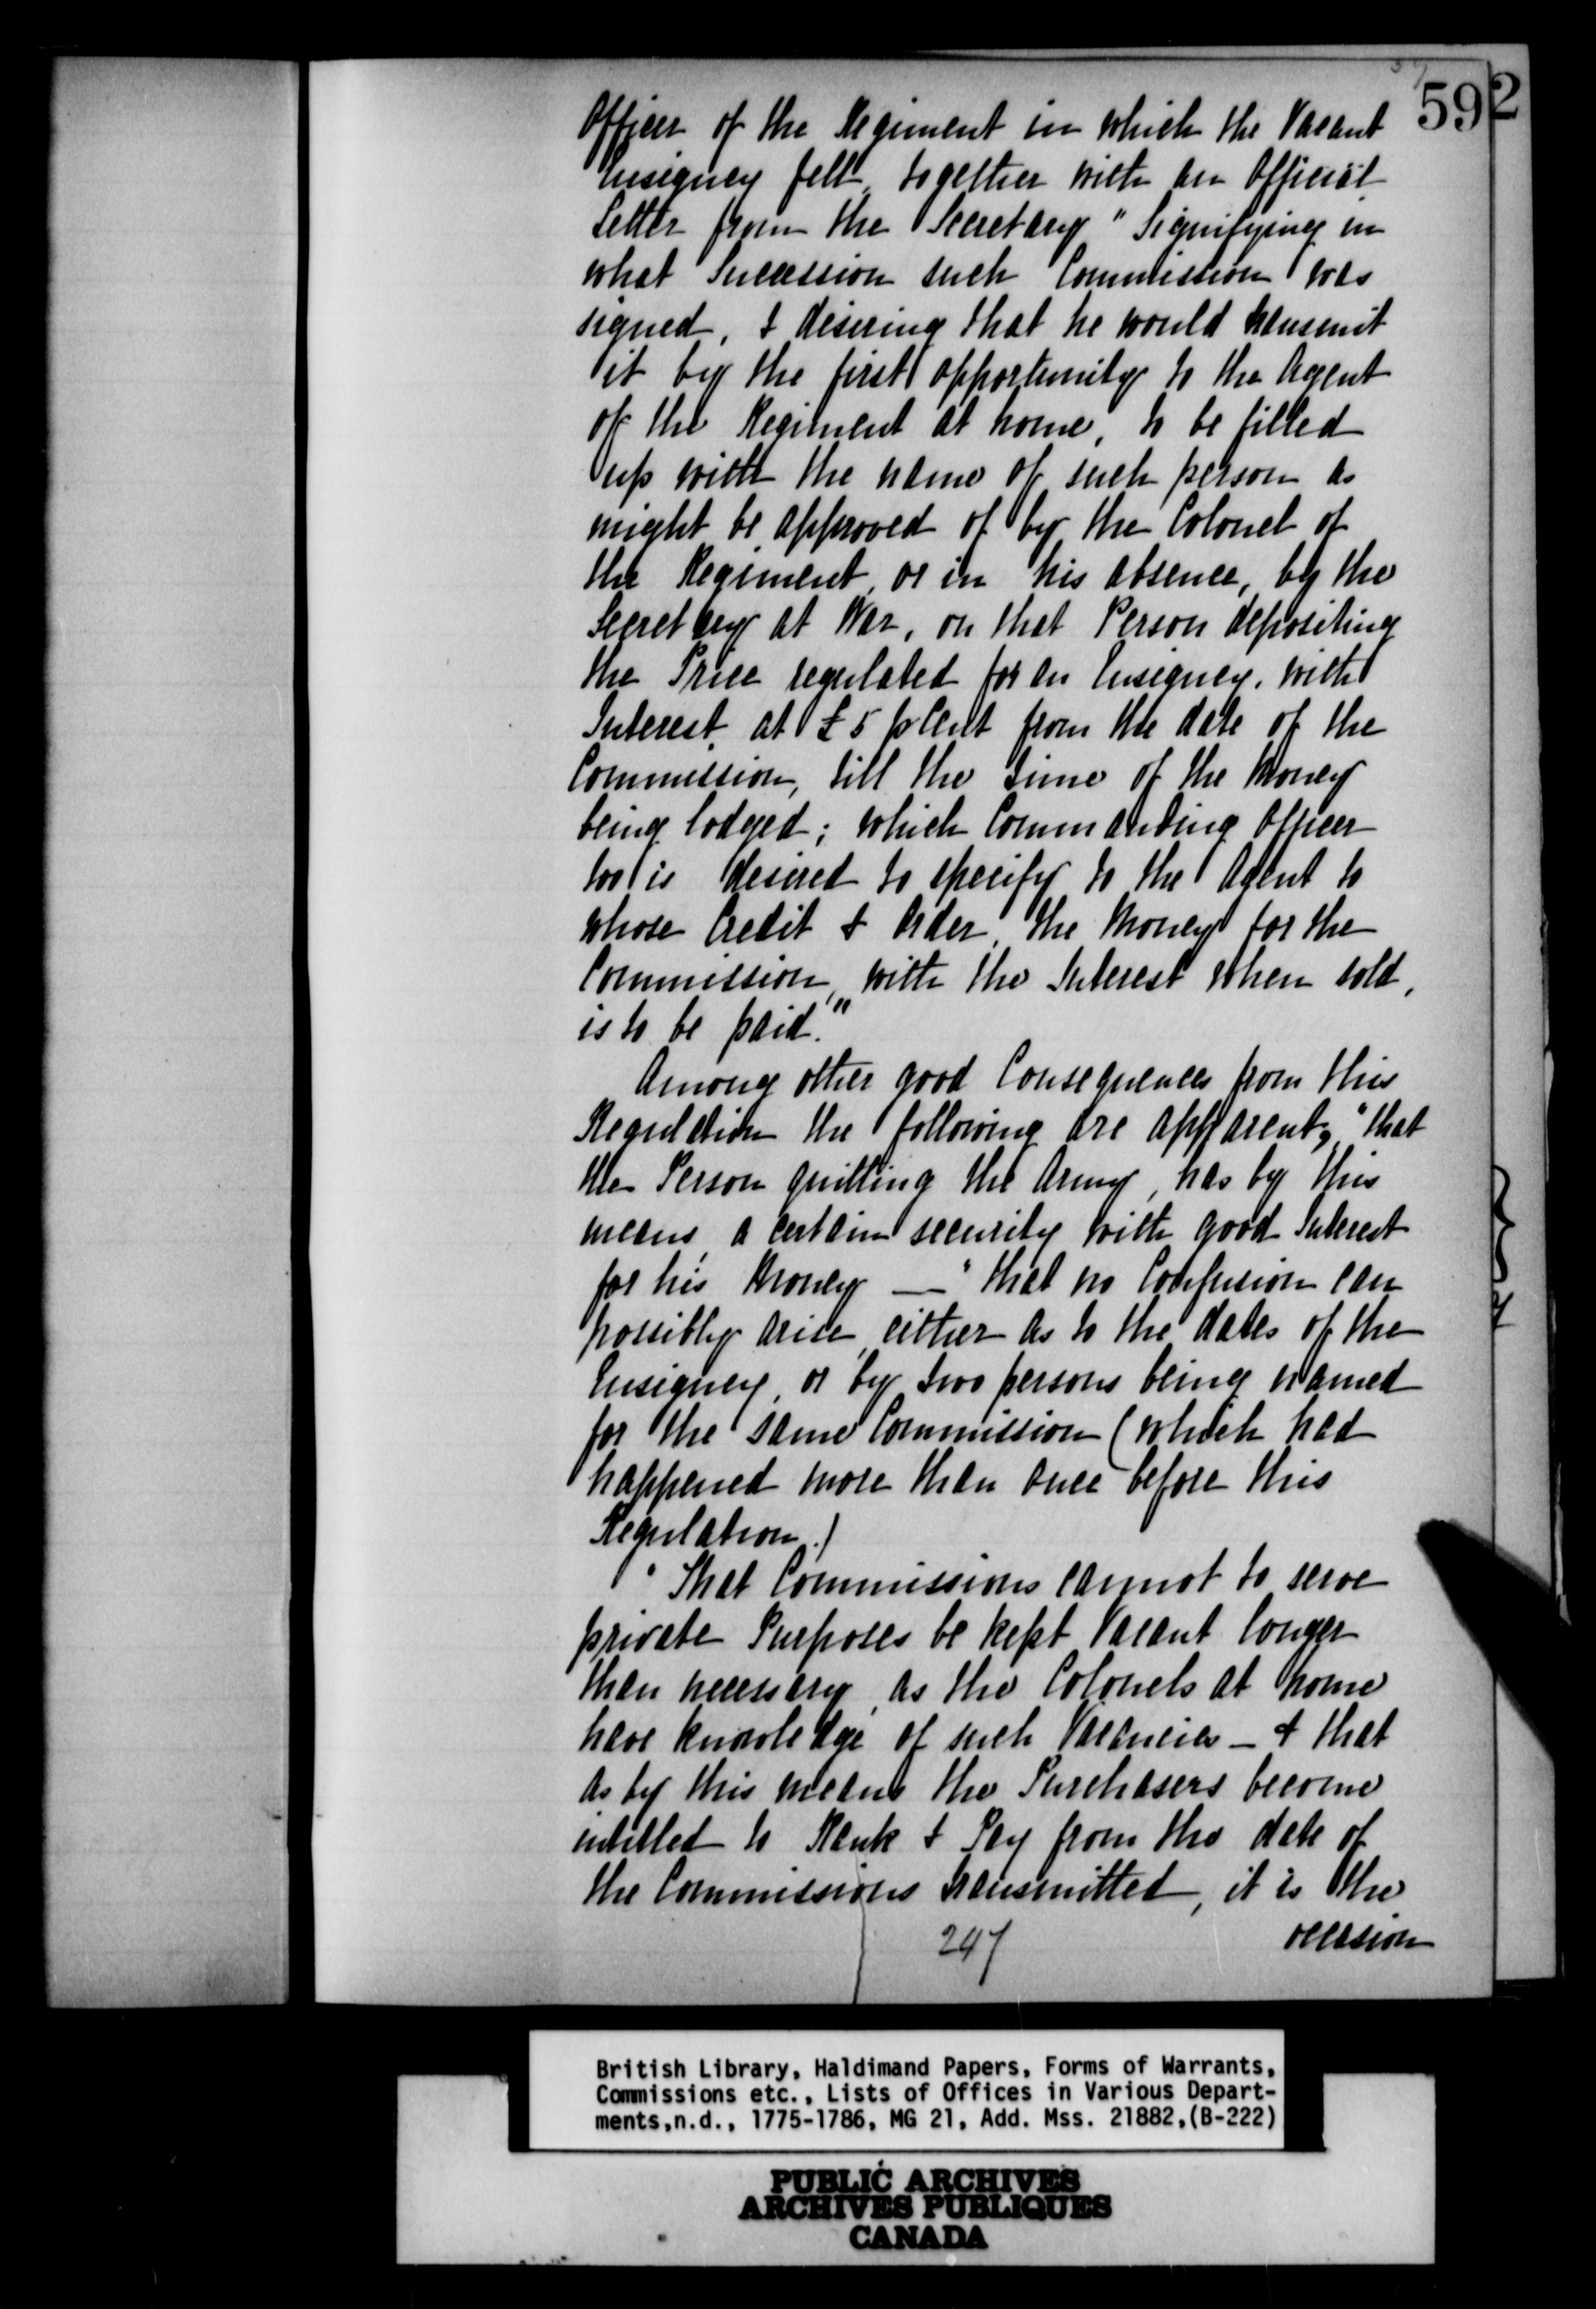 592
Officer of the Regiment in which the Vacant
Ensigncy fell, together with an Official
Letter from the Secretary "Signifying in
what Succession such Commission was
signed, & desiring that he would transmit
it by the first opportunity to the Agent
of the Regiment at home, to be filled
up with the name of such person as
might be approved of by the Colonel of
the Regiment, or in his absence, by the
Secretary at War, on that Person depositing
the Price regulated for an Ensigncy, with
Interest, at £5 p Cent from the date of the
Commission, till the time of the Money
being lodged; which Commanding Officer
too is desired to specify to the Agent to
whose Credit & Order, the Money for the
Commission, with the Interest when sold,
is to be paid."
Among other good Consequences from this
Regulation the following are apparent, "that
the Person quitting the Army, has by this
means, a certain security with good Interest
for his Money — "that no Confusion can
possibly arise, either as to the dates of the
Ensigncy, or by two persons being named
for the same Commission (which had
happened more than once before this
Regulation.)
"That Commissions cannot to serve
private Purposes be kept Vacant longer
than necessary, as the Colonels at home
have knowledge of such Vacancies - & that
as by this means the Purchasers become
intitled to Rank & Pay from the date of
the Commissions transmitted, it is the
occasion
247
British Library, Haldimand Papers, Forms of Warrants,
Commissions etc., Lists of Offices in Various Depart-
ments,n.d., 1775-1786, MG 21, Add. Mss. 21882,(B-222)
PUBLIC ARCHIVES
ARCHIVES PUBLIQUES
CANADA